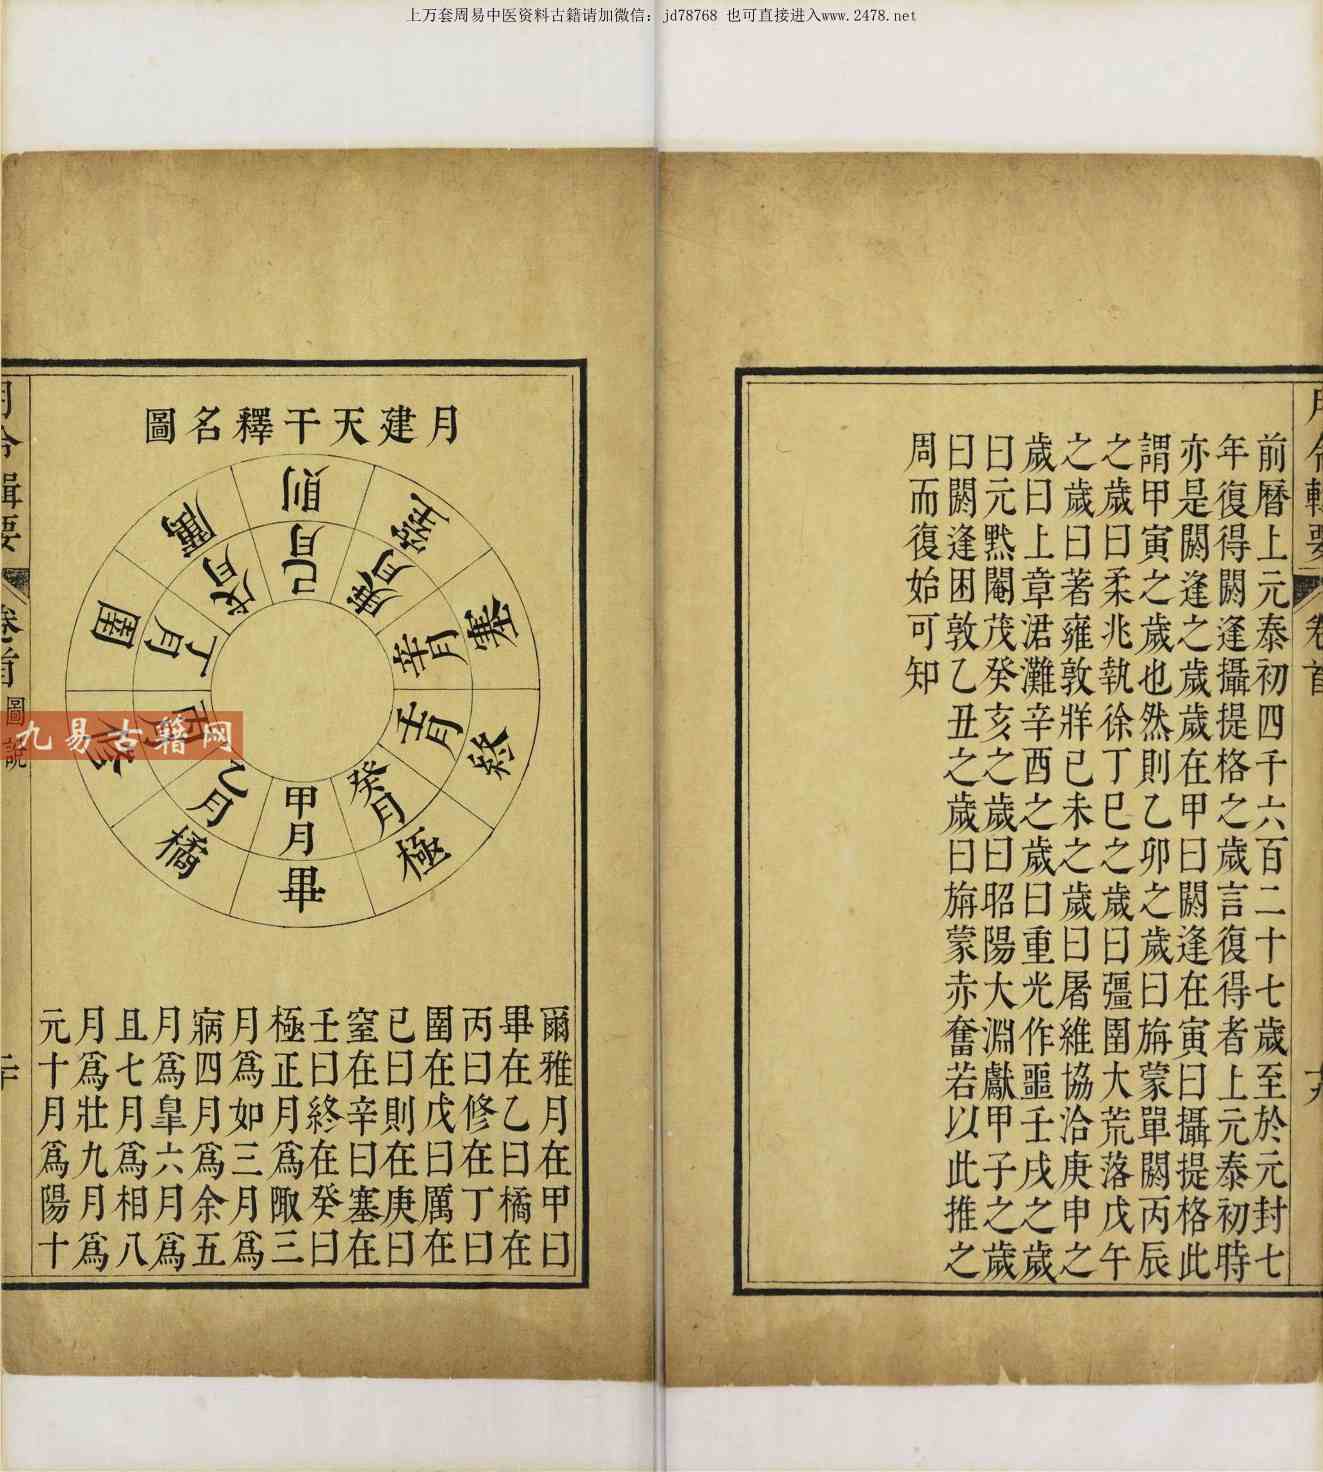 上万套周易中医资料古籍请加微信：jd78768 也可直接进入www.2478.net
月令輯要
卷首
十九
前曆上元泰初四千六百二十七歲至於元封七
年復得閼逢攝提格之歲言復得者上元泰初時
亦是閼逢之歲歲在甲曰閼逢在寅曰攝提格此
謂甲寅之歲也然則乙卯之歲曰旃蒙單閼丙辰
之歲曰柔兆執徐丁巳之歲曰彊圉大荒落戊午
之歲曰著雍敦牂已未之歲曰屠維協洽庚申之
歲曰上章涒灘辛酉之歲曰重光作噩壬戌之歲
曰元黓閹茂癸亥之歲曰昭陽大淵獻甲子之歲
曰閼逢困敦乙丑之歲曰旃蒙赤奮若以此推之
周而復始可知
月建天干釋名圖
甲月 畢
乙月 橘
丙月 修
丁月 圉
戊月 厲
己月 則
庚月 窒
辛月 塞
壬月 終
癸月 極
爾雅月在甲曰
畢在乙曰橘在
丙曰修在丁曰
圉在戊曰厲在
已曰則在庚曰
窒在辛曰塞在
壬曰終在癸曰
極正月爲陬三
月爲如三月爲
寎四月爲余五
月爲皐六月爲
且七月爲相八
月爲壯九月爲
元十月爲陽十
月令輯要
卷首
圖說
二十
九易古籍网